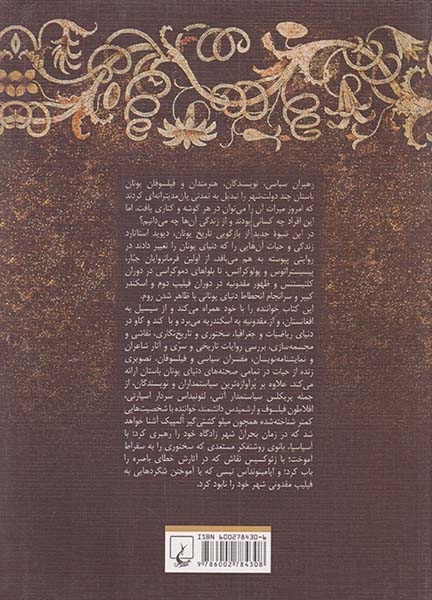 رهبران سیاسی، نویسندگان، هنرمندان و فیلسوفان یونان
باستان چند دولت‌شهر را تبدیل به تمدنی پان‌مدیترانه‌ای کردند
که امروز میراث آن را می‌توان در هر گوشه و کناری یافت. اما
این افراد چه کسانی بودند و از زندگی آن‌ها چه می‌دانیم؟
در این شیوهٔ جدید از بازگویی تاریخ یونان، دیوید استاتارد
زندگی و حیات آن‌هایی را که دنیای یونان را تغییر دادند در
روایتی پیوسته به هم می‌بافد، از اولین فرمانروایان جبّار،
پیسیستراتوس و پولوکراتس، تا بلواهای دموکراسی در دوران
کلیستنس و ظهور مقدونیه در دوران فیلیپ دوم و اسکندر
کبیر و سرانجام انحطاط دنیای یونانی با ظاهر شدن روم.
این کتاب خواننده را با خود همراه می‌کند و از سیسیل به
افغانستان، و از مقدونیه به اسکندریه می‌برد و با کند و کاو در
دنیای ریاضیات و جغرافیا، سخنوری و تاریخ‌نگاری، نقاشی و
مجسمه‌سازی، بررسی روایات تاریخی و سزی و آثار شاعران
و نمایشنامه‌نویسان، مفسران سیاسی و فیلسوفان، تصویری
زنده از حیات در تمامی صحنه‌های دنیای یونان باستان ارائه
می‌کند. علاوه بر پرآوازه‌ترین سیاستمداران و نویسندگان، از
جمله پریکلس سیاستمدار آتنی، لئونیداس سردار اسپارتی،
افلاطون فیلسوف و ارشمیدس دانشمند، خواننده با شخصیت‌هایی
کمتر شناخته‌شده همچون میلو کشتی‌گیر المپیک آشنا خواهد
شد که در زمان بحران شهر زادگاه خود را رهبری کرد؛ با
آسپاسیا، بانوی روشنفکر مستعدی که سخنوری را به سقراط
آموخت؛ با زئوکسیس نقاش که در آثارش خطای باصره را
باب کرد؛ و اپامینونداس تبسی که با آموختن شگردهایی به
فیلیپ مقدونی شهر خود را نابود کرد.
ISBN 600278430-6
9 786002 784308